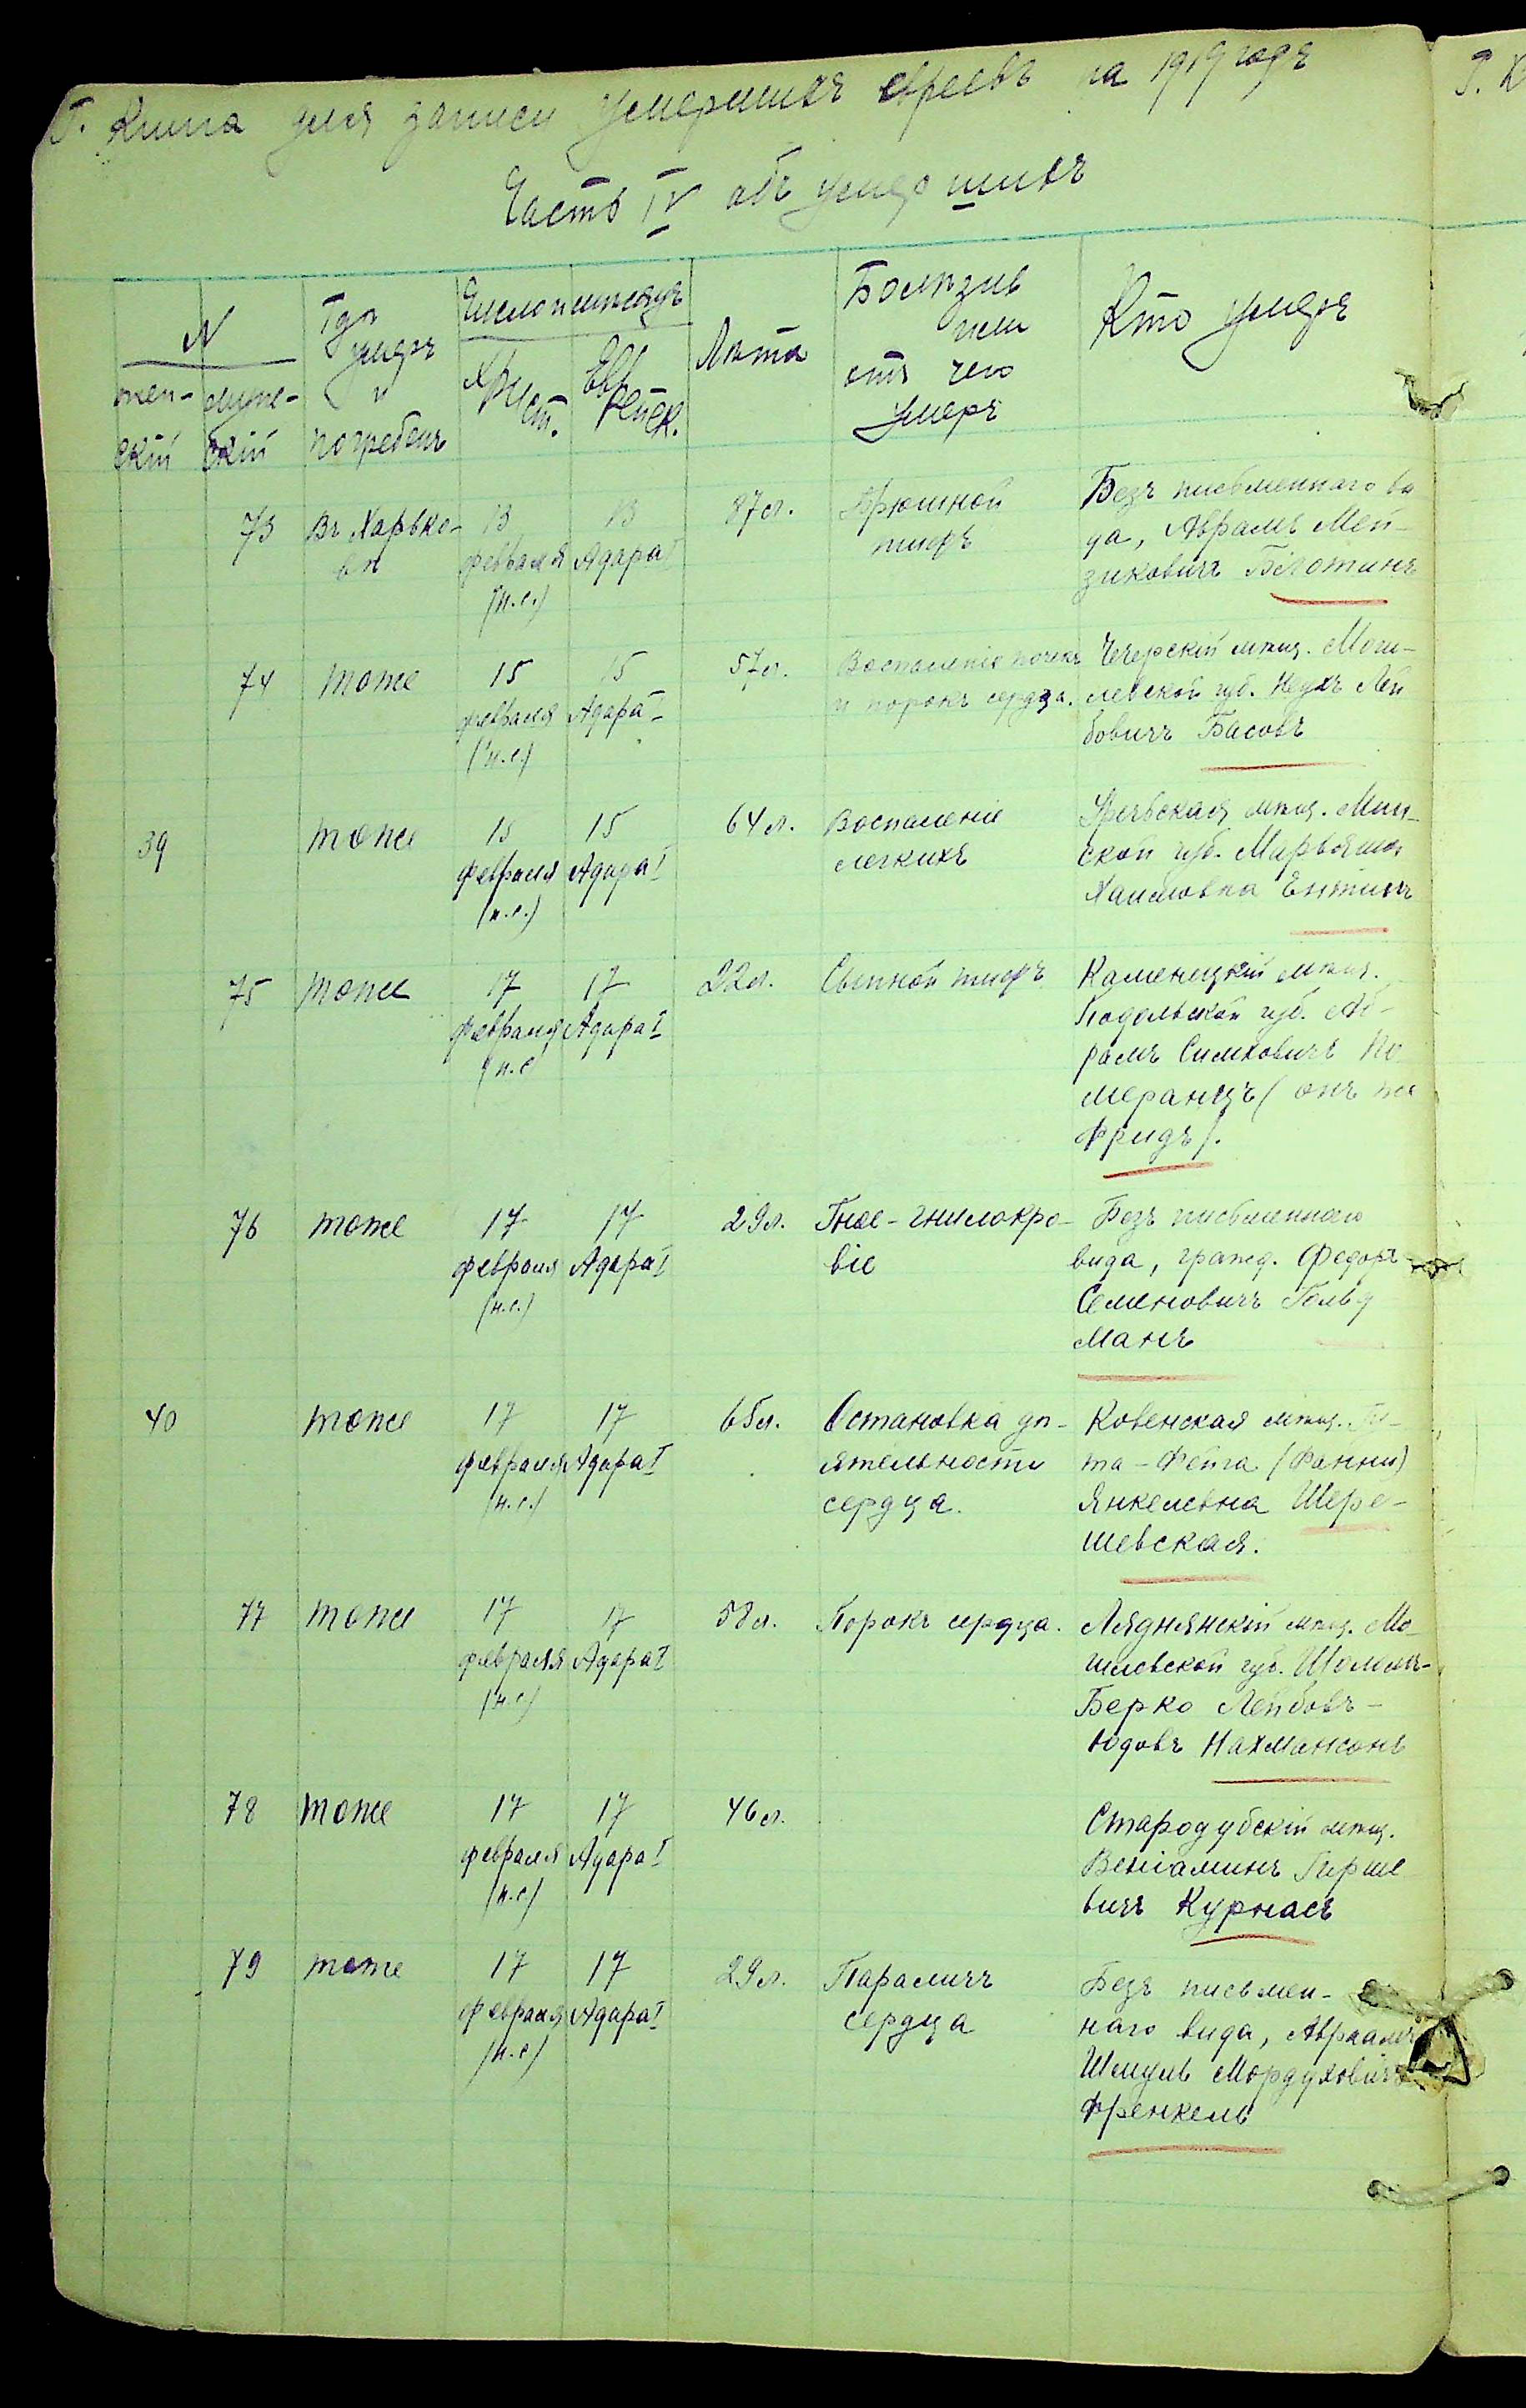 Г. Книга для записи умершихъ евреевъ на 1919 годъ
Часть IV объ умершихъ
N
жен-
скій
муже-
скій
Гдѣ
умеръ
и
погребенъ
Число и мѣсяцъ
Христ.
Еврейск.
Лѣта
Болѣзнь
или
отъ чего
умеръ
Кто умеръ
73
Въ Харько-
вѣ
13
февраля
(н.с.)
13
Адара I
87 л.
Брюшной
тифъ
Безъ письменнаго ви
да, Абрамъ Мей-
зиковичъ
74
тоже
15
февраля
(н.с.)
15
Адара I
57 л.
Воспаленіе почекъ
и порокъ сердца.
Чечерскій мѣщ. Моги-
левской губ. Лей
бовичъ Басовъ
39
тоже
15
февраля
(н.с.)
15
Адара I
64 л.
Воспаленіе
легкихъ
мѣщ. Мин-
ской губ. Марьяша
Хаимовна Ентинъ
75
тоже
17
февраля
(н.с
17
Адара I
22 л.
Сыпной тифъ
Каменецкій мѣщ.
Подольской губ. Аб-
рамъ Симховичъ По
меранцъ (онъ же
Фридъ).
76
тоже
17
февраля
(н.с.)
17
Адара I
29 л.
Гное-гнилокро-
віе
Безъ письменнаго
вида, гражд. Федоръ
Семеновичъ Гольд
манъ
40
тоже
17
февраля
(н.с.)
17
Адара I
65 л.
Остановка дѣ-
ятельности
сердца.
Ковенская мѣщ. Ги-
та-Фейга (Фанни)
Янкелевна Шере-
шевская.
77
тоже
17
февраля
(н.с)
17
Адара I
58 л.
Порокъ сердца.
Ляднянскій мѣщ. Мо-
гилевской губ. Шоломъ-
Берко Лейбовъ-
Юдовъ Нахмансонъ
78
тоже
17
февраля
(н.с)
17
Адара I
46 л.
Стародубскій мѣщ.
Веніаминъ Гирше
вичъ Курнасъ
79
тоже
17
февраля
(н.с)
17
Адара I
29 л.
Параличъ
сердца
Безъ письмен-
наго вида, Авраамъ
Шмуль Мордуховичъ
Френкель